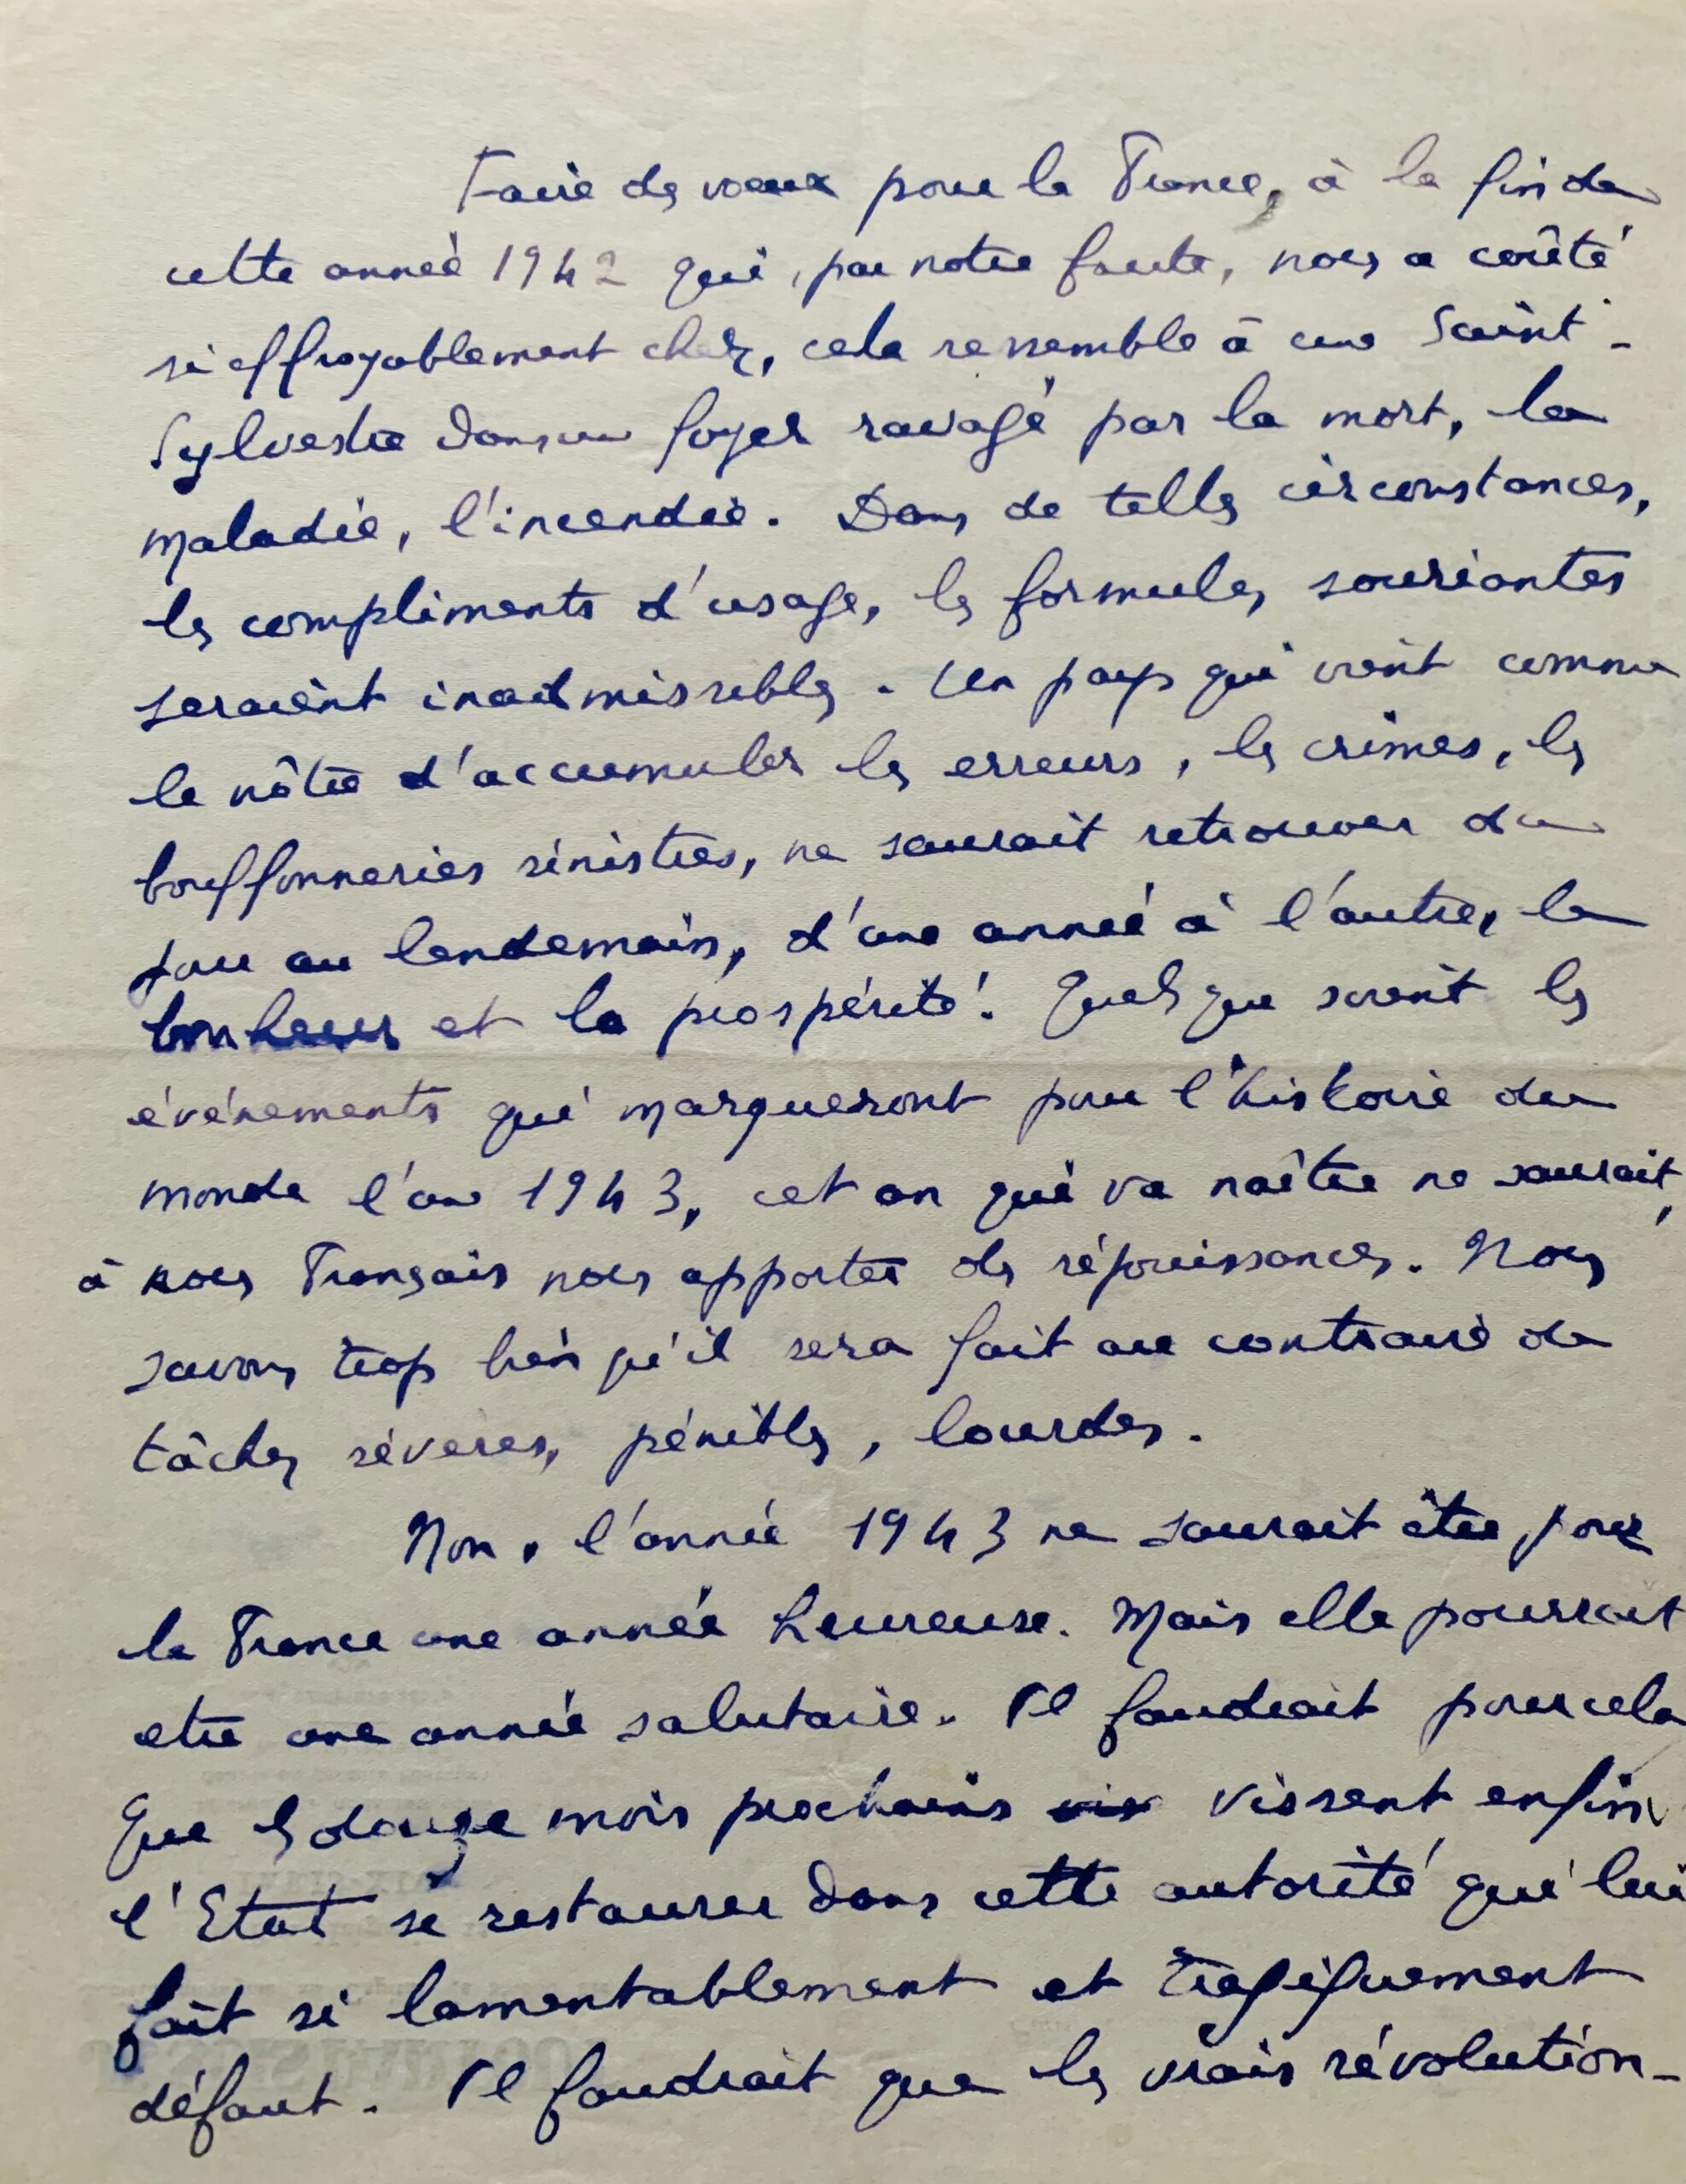 Faire des vœux pour la France, à la fin de
cette année 1942 qui, par notre faute, nous a coûté
si effroyablement cher, cela ressemble à une Saint-
Sylvestre dans un foyer ravagé par la mort, la
maladie, l'incendie. Dans de telles circonstances,
les compliments d'usage, les formules souriantes
seraient inadmissibles. Un pays qui vient comme
le nôtre d'accumuler les erreurs, les crimes, les
bouffonneries sinistres, ne saurait retrouver du
jour au lendemain, d'une année à l'autre, le
bonheur et la prospérité. Quels que soient les
événements qui marqueront pour l'histoire du
monde l'an 1943, cet an qui va naître ne saurait,
à nous Français nous apporter des réjouissances. Nous
savons trop bien qu'il sera fait au contraire de
tâches sévères, pénibles, lourdes.
Non, l'année 1943 ne saurait être pour
la France une année heureuse. Mais elle pourrait
etre une année salutaire. Il faudrait pour cela
que les douze mois prochains vissent enfin
l'Etat se restaurer dans cette autorité qui lui
fait si lamentablement et tragiquement
défaut. Il faudrait que les vrais révolution-